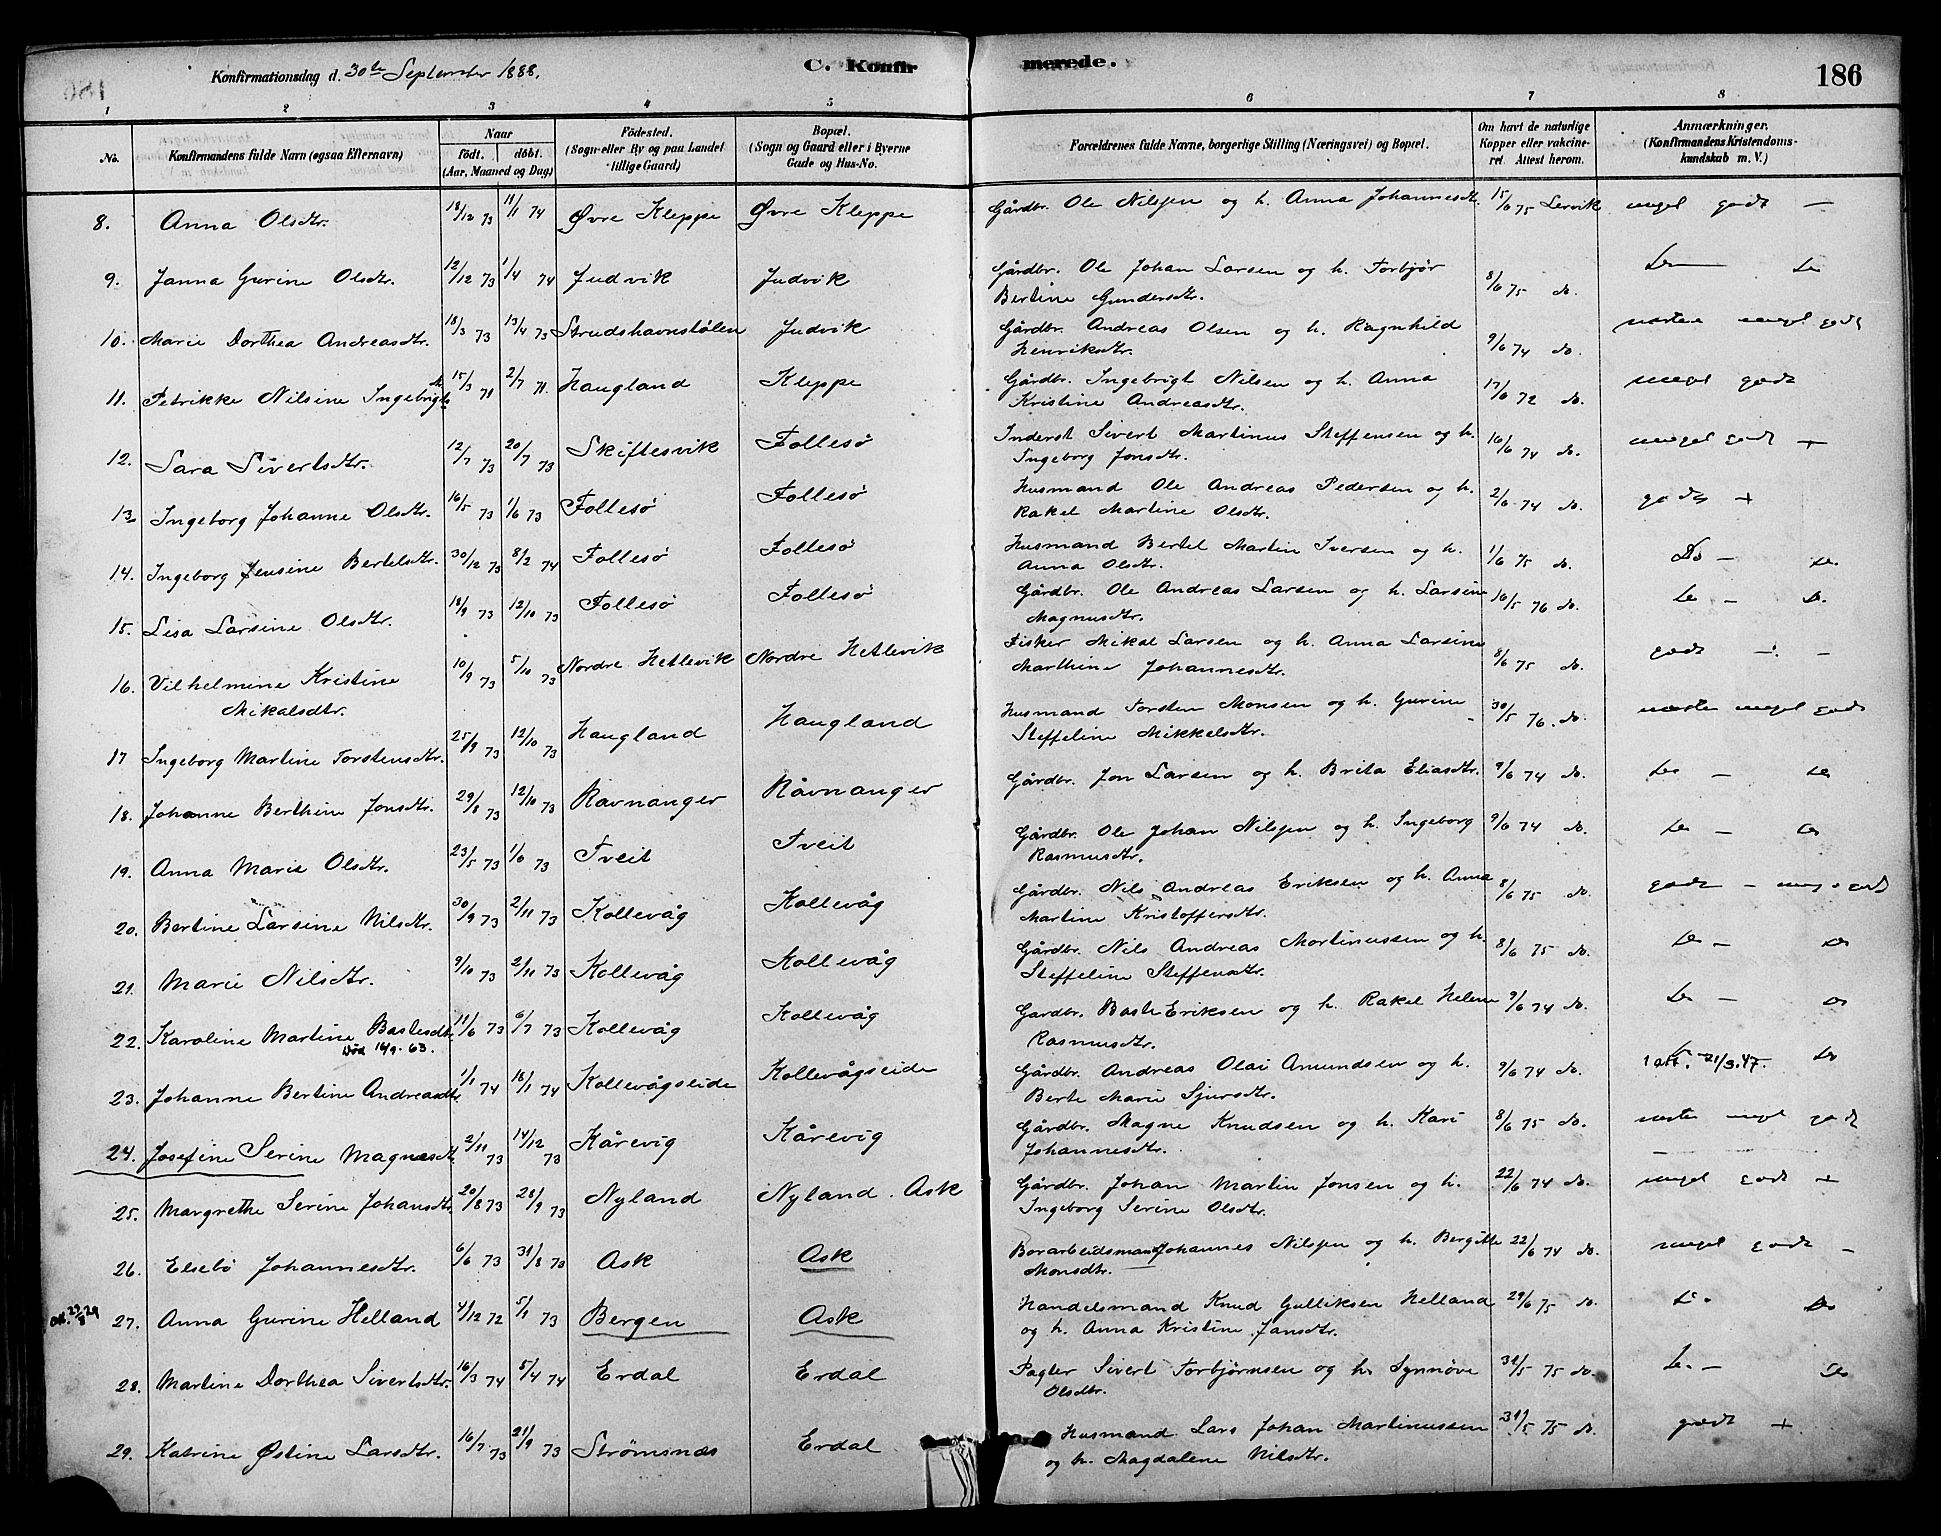 Konfirmationsdag d. 30te September 1888.
C. Konfirmerede.
186
1 2 3 4 5 6 7 8
No.
Konfirmandens fulde Navn (ogsaa Efternavn)
Naar
födt. döbt.
(Aar, Maaned og Dag)
Födested.
(Sogn- eller By og paa Landet
tillige Gaard)
Bopæl.
(Sogn og Gaard eller i Byerne
Gade og Hus-No.
Forældrenes fulde Navne, borgerlige Stilling (Næringsvei) og Bopæl.
Om havt de naturlige
Kopper eller vakcine-
ret. Attest herom.
Anmærkninger.
(Konfirmandens Kristendoms-
kundskab m. V.)
8. Anna Olsdtr. 18/12 73 11/1 74 Øvre Kleppe Øvre Kleppe Gårdbr. Ole Nilsen og h. Anna Johannesdt. 15/6 75 Lervik meget godt —
9. Janna Gurine Olsdtr. 12/12 73 1/4 74 Judvik Judvik Gårdbr. Ole Johan Larsen og h. Torbjør
Bertine Gundersdtr. 8/6 75 do.
10. Marie Dorthea Andreasdtr. 18/3 73 13/4 73 Strudshavnstølen Judvik Gårdbr. Andreas Olsen og h. Ragnhild
Henriksdtr. 9/6 74 do. næsten meget godt
11. Petrikke Nilsine Ingebrigts dt 15/3 71 2/7 71. Haugland Kleppe Gårdbr. Ingebrigt Nilsen og h. Anna
Kristine Andreasdtr. 17/6 72 do. meget godt
12. Sara Sivertsdtr. 12/7 73 20/7 73 Skiftesvik Follesø Inderst Sivert Martinus Steffensen og h.
Ingeborg Jonsdtr. 16/6 74 do. meget godt +
13. Ingeborg Johanne Olsdtr. 16/5 73 1/6 73 Follesø Follesø Husmand Ole Andreas Pedersen og h.
Rakel Martine Olsdtr. 2/6 74 do. godt +
14. Ingeborg Jensine Bertelsdtr. 30/12 73 8/2 74 Follesø Follesø Husmand Bertel Martin Iversen og h.
Anna Olsdtr. 1/6 75 do. Do —
15. Lisa Larsine Olsdtr. 18/9 73 12/10 73 Follesø Follesø Gårdbr. Ole Andreas Larsen og h. Larsine
Magnusdtr. 16/5 76 do.
16. Vilhelmine Kristine
Mikalsdtr. 10/9 73 5/10 73 Nordre Hetlevik Nordre Hetlevik Fisker Mikal Larsen og h. Anna Larsine
Marthine Johannesdtr. 8/6 75 do. godt — —
17 Ingeborg Martine Torstensdtr. 25/9 73 12/10 73 Haugland Haugland Husmand Torsten Monsen og h. Gurine
Steffeline Mikkelsdtr. 30/5 76. do. næsten meget godt
18. Johanne Berthine Jonsdtr. 29/8 73 12/10 73 Ravnanger Råvnanger Gårdbr. Jon Larsen og h. Brita Eliasdtr. 9/6 74 do.
19. Anna Marie Olsdtr. 23/5 73 1/6 73 Tveit Tveit Gårdbr. Ole Johan Nilsen og h. Ingeborg
Rasmusdtr. 9/6 74 do.
20. Bertine Larsine Nilsdtr. 30/9 73 2/11 73 Kollevåg Kollevåg Gårdbr. Nils Andreas Eriksen og h. Anna
Martine Kristoffersdtr. 8/6 75 do. godt — meget godt
21. Marie Nilsdtr. 9/10 73 2/11 73 Kollevåg Kollevåg Gårdbr. Nils Andreas Mortinussen og h.
Steffeline Steffensdtr. 8/6 75 do.
22. Karoline Martine Bastesdtr. 11/6 73 6/7 73 Kollevåg Kollevåg Gardbr. Baste Eriksen og h. Rakel Helene
Rasmusdtr. 9/6 74 do.
Død 16/9-63.
23. Johanne Bertine Andreasdtr. 1/1 74 18/1 74 Kollevågseide Kollevågseide Gårdbr. Andreas Olai Amundsen og h.
Berte Marie Sjursdtr. 9/6 74 do. 1 att. 21/3.47.
24. Josefine Serine Magnesdt. 2/11 73 14/12 73 Kårevig Kårevig Gårdbr. Magne Knudsen og h. Kari
Johannesdtr. 8/6 75 do. næsten meget godt
25. Margrethe Serine Johansdtr. 20/8 73 28/9 73 Nyland Nyland. Ask Gårdbr. Johan Martin Jonsen og h.
Ingeborg Serine Olsdtr. 22/6 74 do. meget godt +
26. Elsebø Johannesdtr. 6/6 73 31/8 73 Ask Ask Borarbeidsmand Johannes Nilsen og h. Bergitte
Monsdtr. 22/6 74 do. meget godt —
27. Anna Gurine Helland 4/12 72 5/1 73 Bergen Ask Handelsmand Knud Gulliksen Helland
og h. Anna Kristine Jansdtr. 29/6 75 do.
28. Martine Dorthea Sivertsdtr. 16/3 74 5/4 74 Erdal Erdal Pagter Sivert Torbjørnsen og h. Synnøve
Olsdtr. 31/5 75 do.
29. Katrine Østine Larsdtr. 16/7 73 21/9 73 Strømsnæs Erdal Husmand Lars Johan Martinussen
og h. Magdalene Nilsdtr. 31/5 75 do. godt +